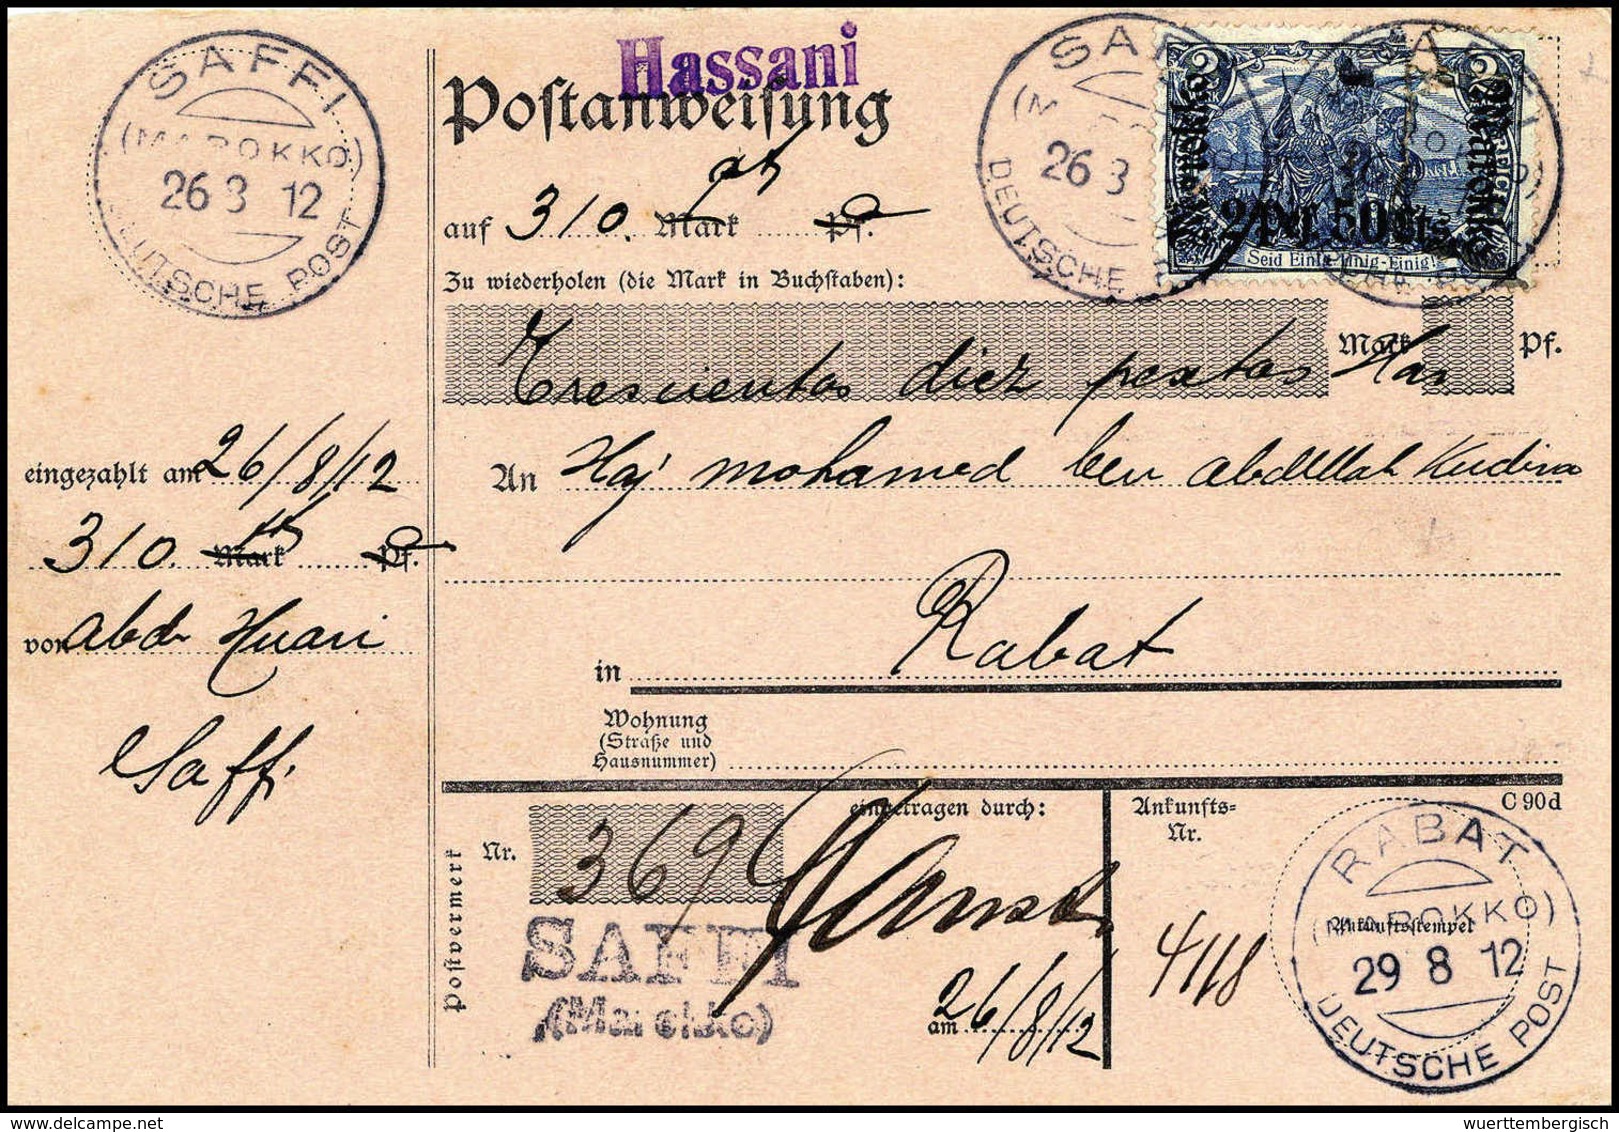 SAFFI
(MAROKKO)
26 8 12
DEUTSCHE POST
Hassani
Postanweisung
auf 310. Mark Pf.
Zu wiederholen (die Mark in Buchstaben):
Trescientas diez pesetas Has Mark Pf.
SAFFI
26 8
DEUTSCHE
2 REICH 2
Marokko Marokko
2 Pes. 50 Cts.
Seid Einig-Einig-Einig
eingezahlt am 26/8/12
310. Mark Pf.
von abd- Huari
Saffi
An Haj mohamed ben abdellah Kudira
in Rabat
Wohnung
(Straße und
Hausnummer)
Postvermerk
Nr. 369
eingetragen durch:
am 26/8/12
SAFFI
(Marokko)
Ankunfts=
Nr.
C 90d
Ankunftsstempel
RABAT
(MAROKKO)
29 8 12
DEUTSCHE POST
wuerttembergisch